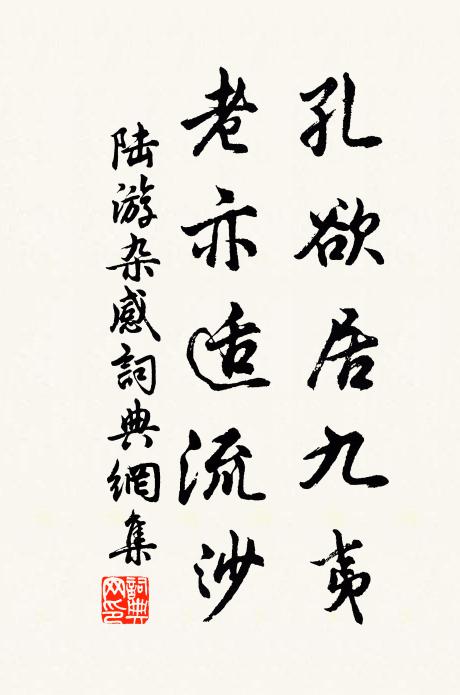 孔欲居九夷
老亦适流沙
陆游杂感詞典網集
詞典网印